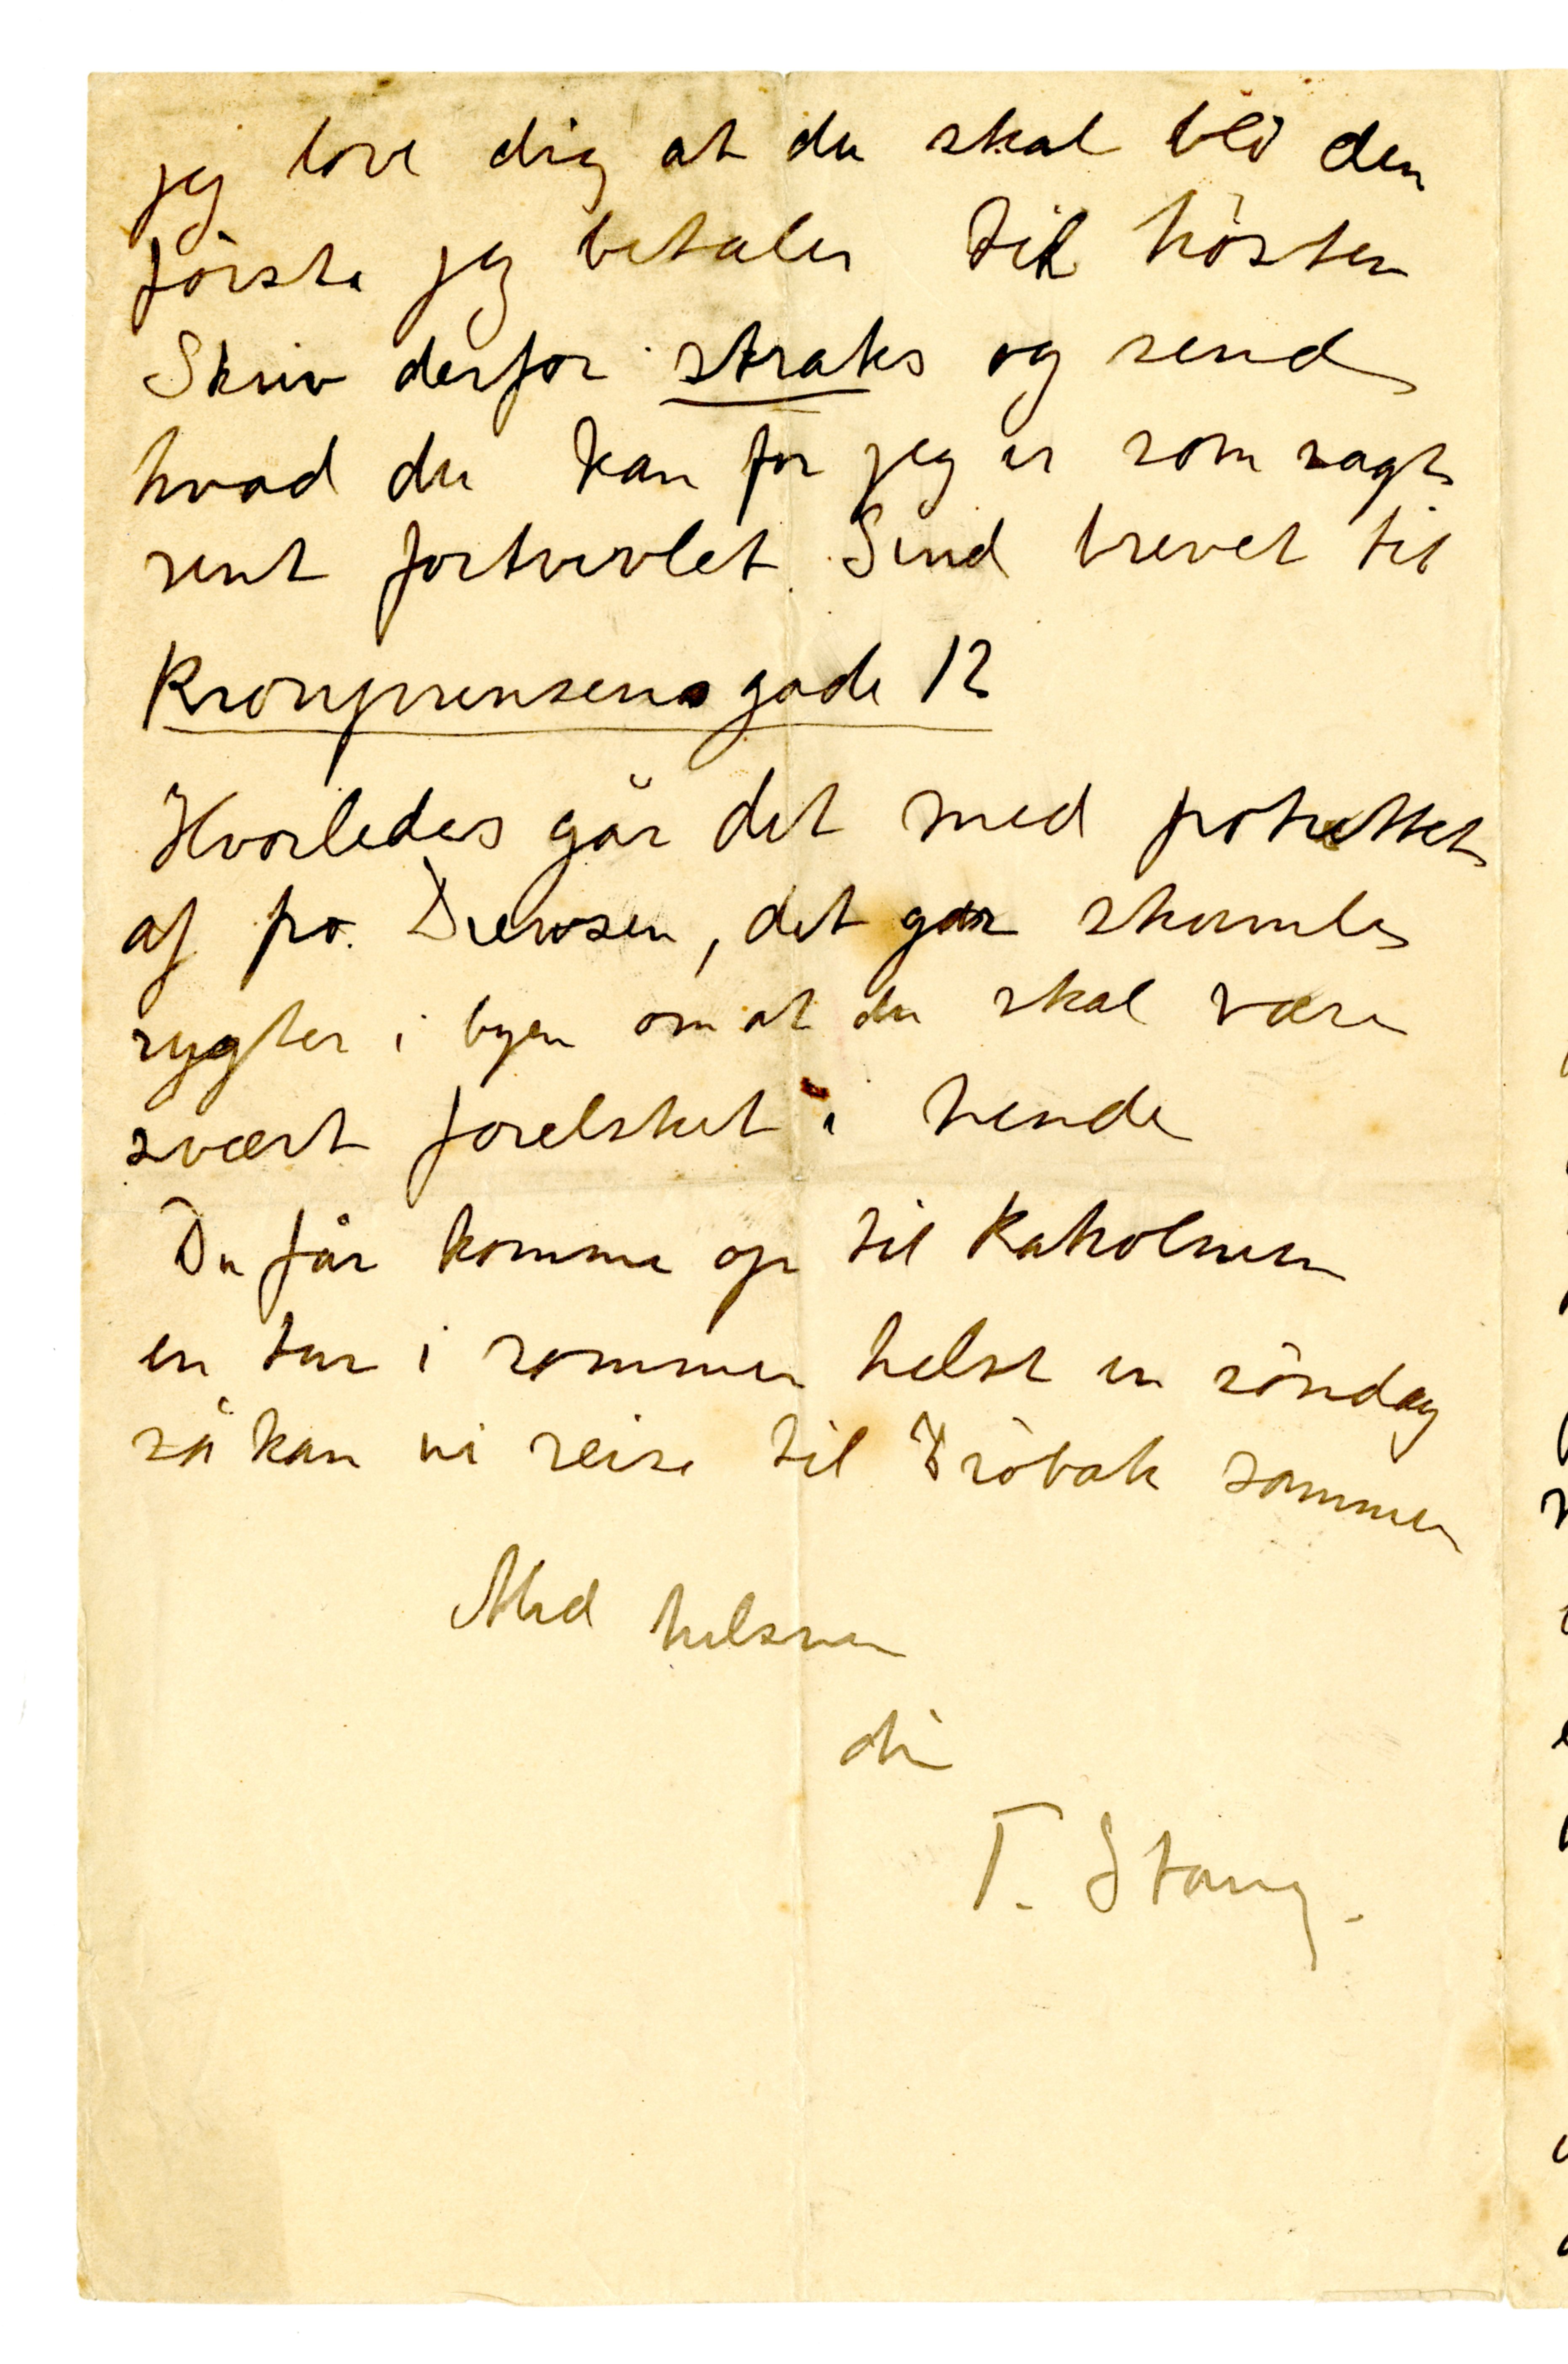 jeg love dig at du skal bli den
förste jeg betaler til hösten
Skriv derfor straks og send
hvad du kan for jeg er som sagt
rent fortvivlet. Send brevet til
Kronprinsens gade 12
Hvorledes går det med potrættet
af fro. Drewsen, det går skumle
rygter i byen om at du skal være
svært forelsket i hende
Du får komme op til Kaholmen
en tur i sommer helst en söndag
så kan vi reise til Dröbak sammen
Med hilsen
din
T. Stang.